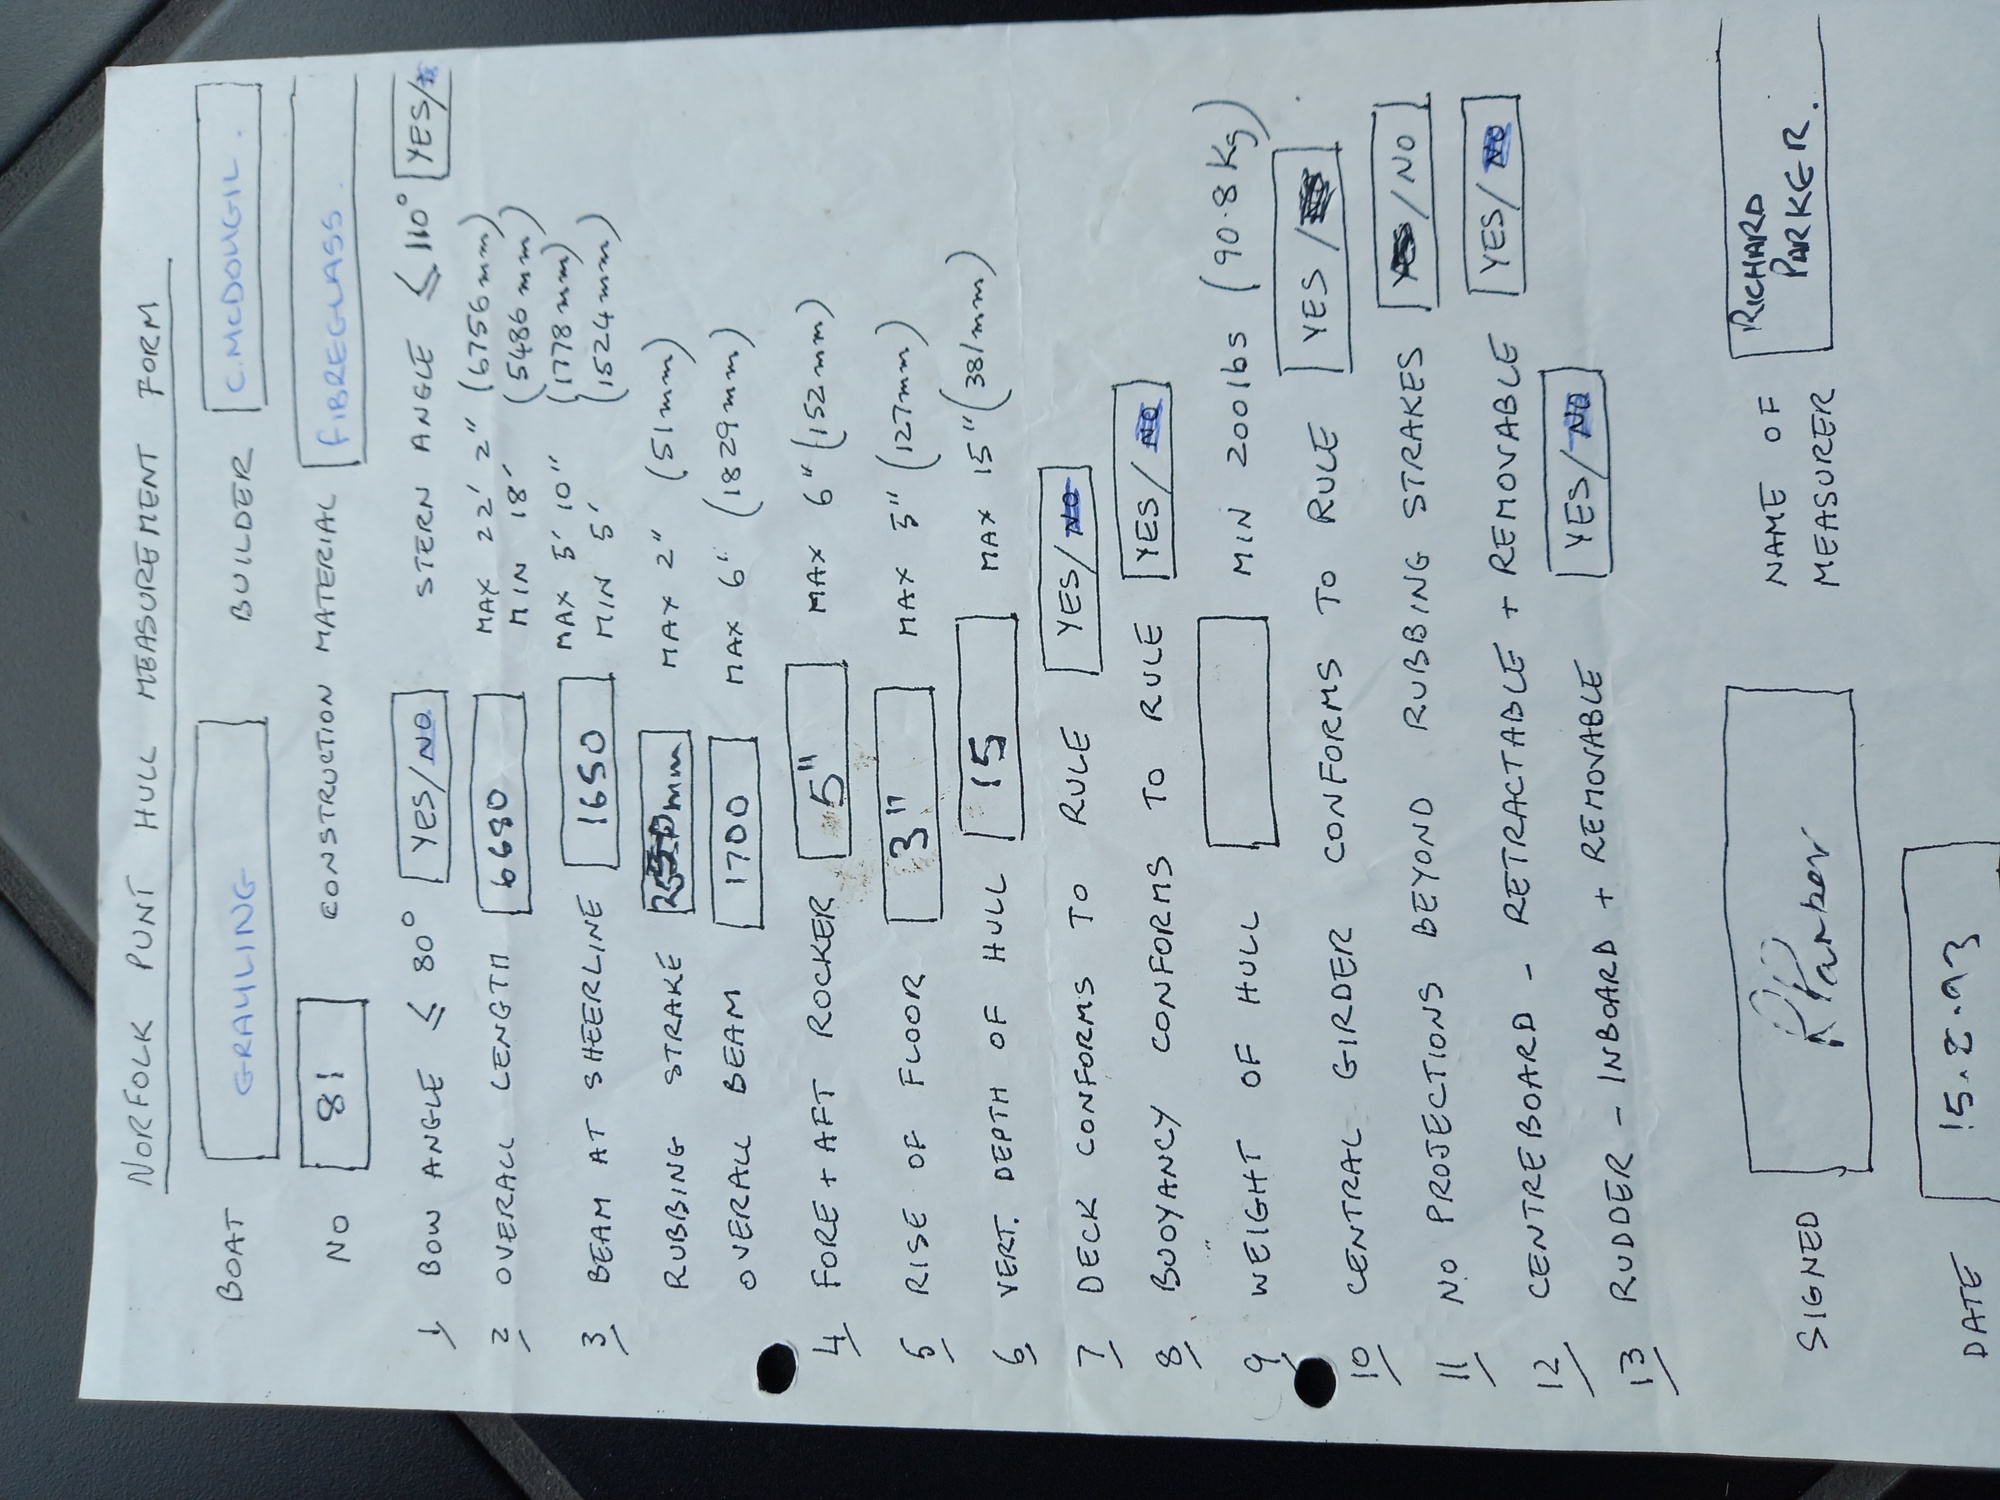 NORFOLK PUNT HULL MEASUREMENT FORM
BOAT GRAYLING BUILDER C. MCDOUGIL.
NO 81 CONSTRUCTION MATERIAL FIBREGLASS.
1/ BOW ANGLE ≤ 80° YES/NO STERN ANGLE ≤ 110° YES/
2/ OVERALL LENGTH 6680 MAX 22' 2" (6756mm)
MIN 18' (5486mm)
3/ BEAM AT SHEERLINE 1650 MAX 5' 10" (1778mm)
MIN 5' (1524mm)
RUBBING STRAKE mm MAX 2" (51mm)
OVERALL BEAM 1700 MAX 6' (1829mm)
4/ FORE + AFT ROCKER 5" MAX 6" (152mm)
5/ RISE OF FLOOR 3" MAX 5" (127mm)
6/ VERT. DEPTH OF HULL 15 MAX 15" (381mm)
7/ DECK CONFORMS TO RULE YES/NO
8/ BUOYANCY CONFORMS TO RULE YES/NO
9/ WEIGHT OF HULL MIN 200lbs (90.8 Kg)
10/ CENTRAL GIRDER CONFORMS TO RULE YES/
11/ NO PROJECTIONS BEYOND RUBBING STRAKES YES/NO
12/ CENTREBOARD - RETRACTABLE + REMOVABLE YES/NO
13/ RUDDER - INBOARD + REMOVABLE YES/NO
SIGNED RParker NAME OF MEASURER RICHARD PARKER.
DATE 15.2.93